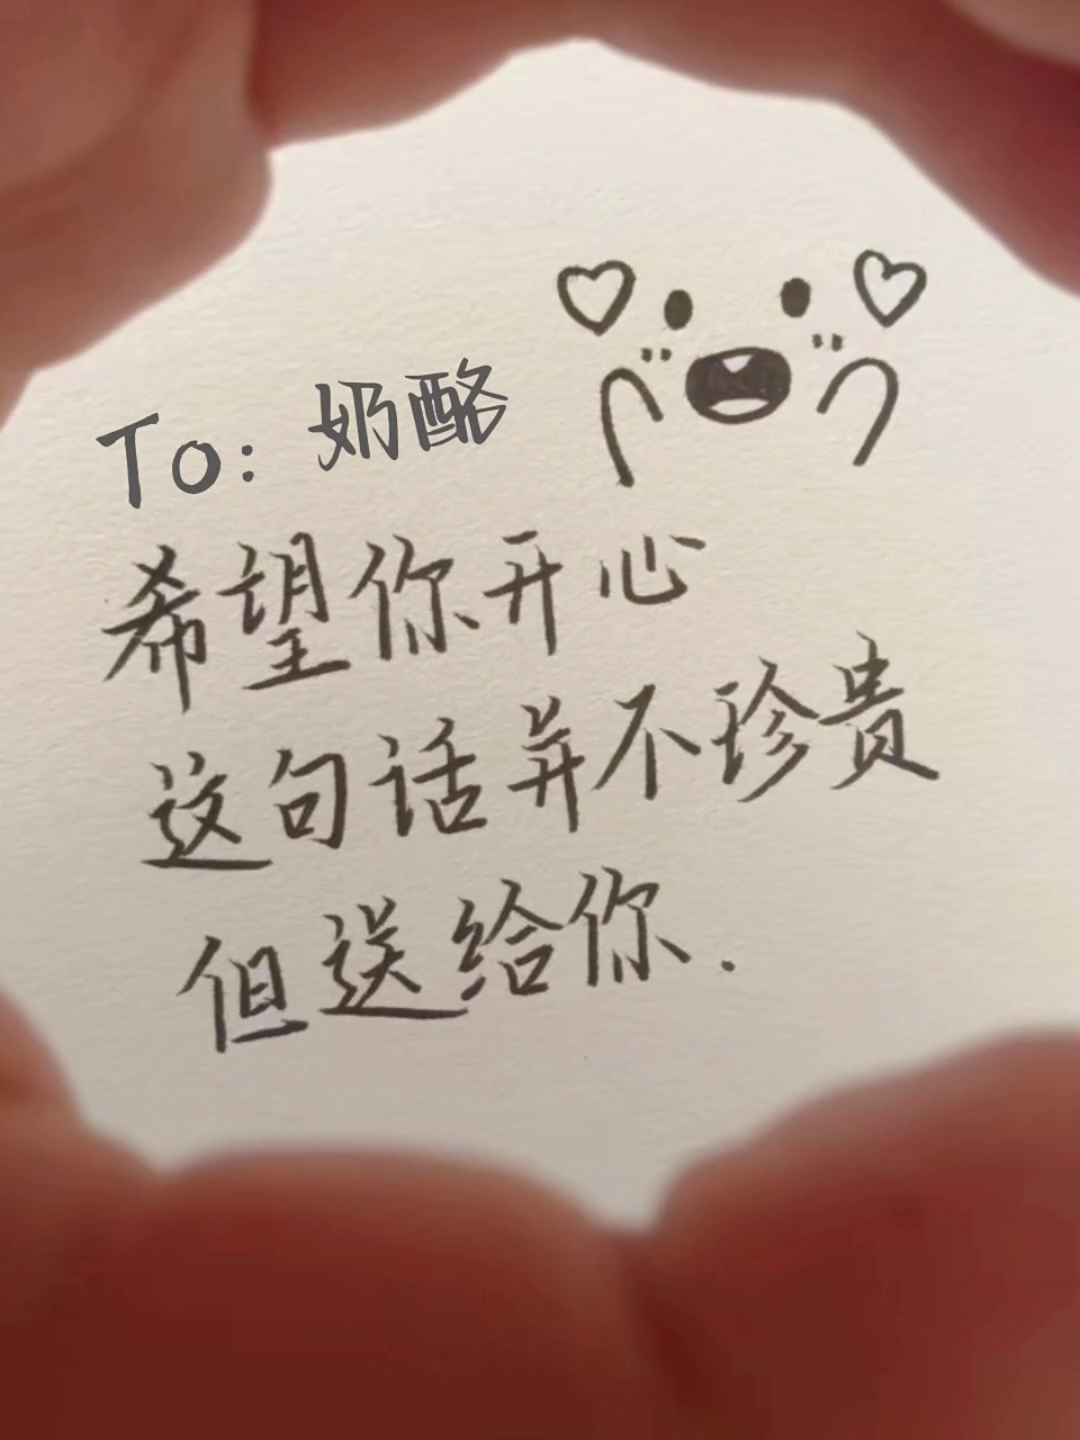 To: 奶酪
希望你开心
这句话并不珍贵
但送给你.